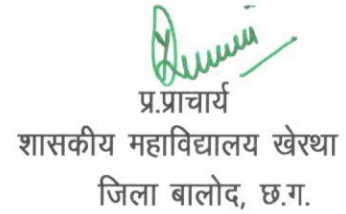 प्र.प्राचार्य
शासकीय महाविद्यालय खेरथा
जिला बालोद, छ.ग.